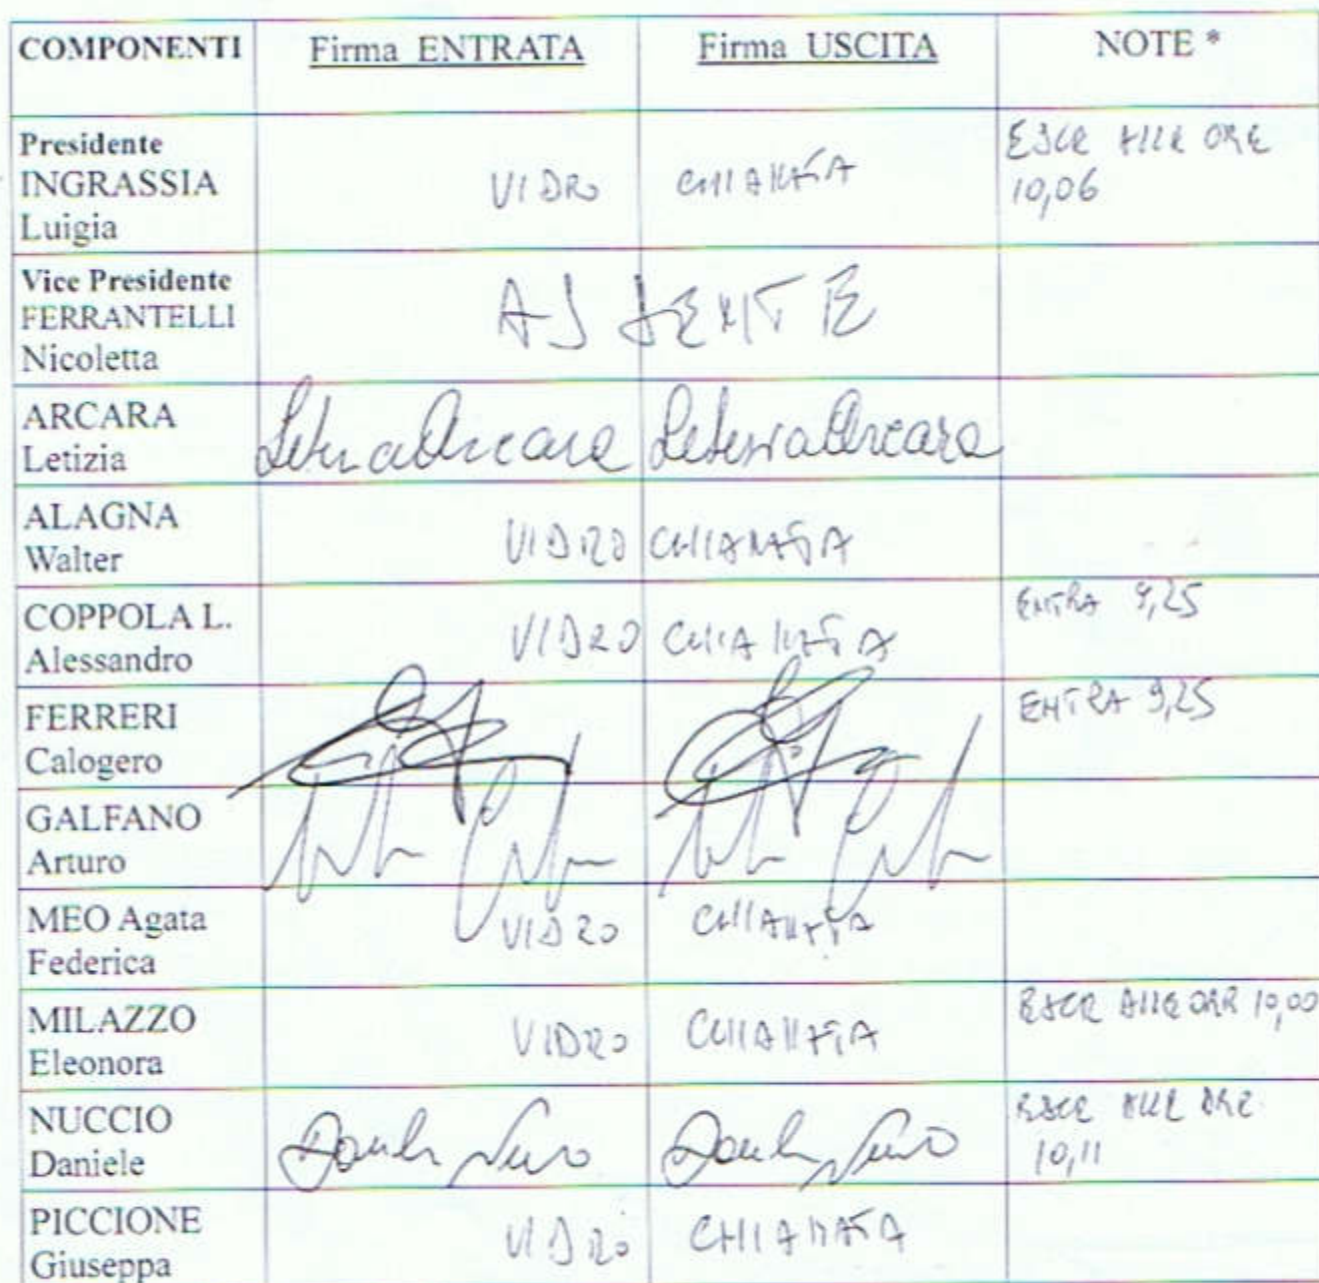 COMPONENTI Firma ENTRATA Firma USCITA NOTE *
Presidente
INGRASSIA
Luigia
VIDEO CHIAMATA
ESCE ALLE ORE
10,06
Vice Presidente
FERRANTELLI
Nicoletta
ASSENTE
ARCARA
Letizia
Letizia Arcara Letizia Arcara
ALAGNA
Walter
VIDEO CHIAMATA
COPPOLA L.
Alessandro
VIDEO CHIAMATA
ENTRA 9,25
FERRERI
Calogero
ENTRA 9,25
GALFANO
Arturo
MEO Agata
Federica
VIDEO CHIAMATA
MILAZZO
Eleonora
VIDEO CHIAMATA
ESCE ALLE ORE 10,00
NUCCIO
Daniele
Daniele Nuccio Daniele Nuccio
ESCE ALLE ORE
10,11
PICCIONE
Giuseppa
VIDEO CHIAMATA